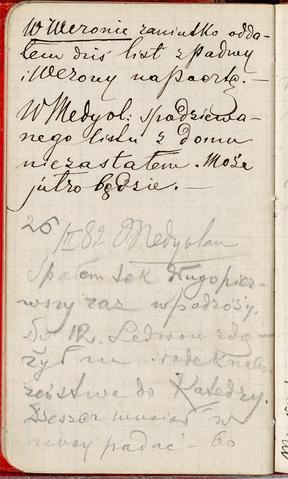 W Weronie zaniutko odda-
łem dziś list z Padwy
i Werony na pocztę.—
W Medyol: spodziewa-
nego listu z domu
niezastałem. Może
jutro będzie.—
26/II 82 Medyolan
Spałem tak długo pier-
wszy raz w podróży.
do 12. Ledwom zdą-
żył na nabo-
żeństwo do Katedry.
Deszcz musiał w
nocy padać - bo